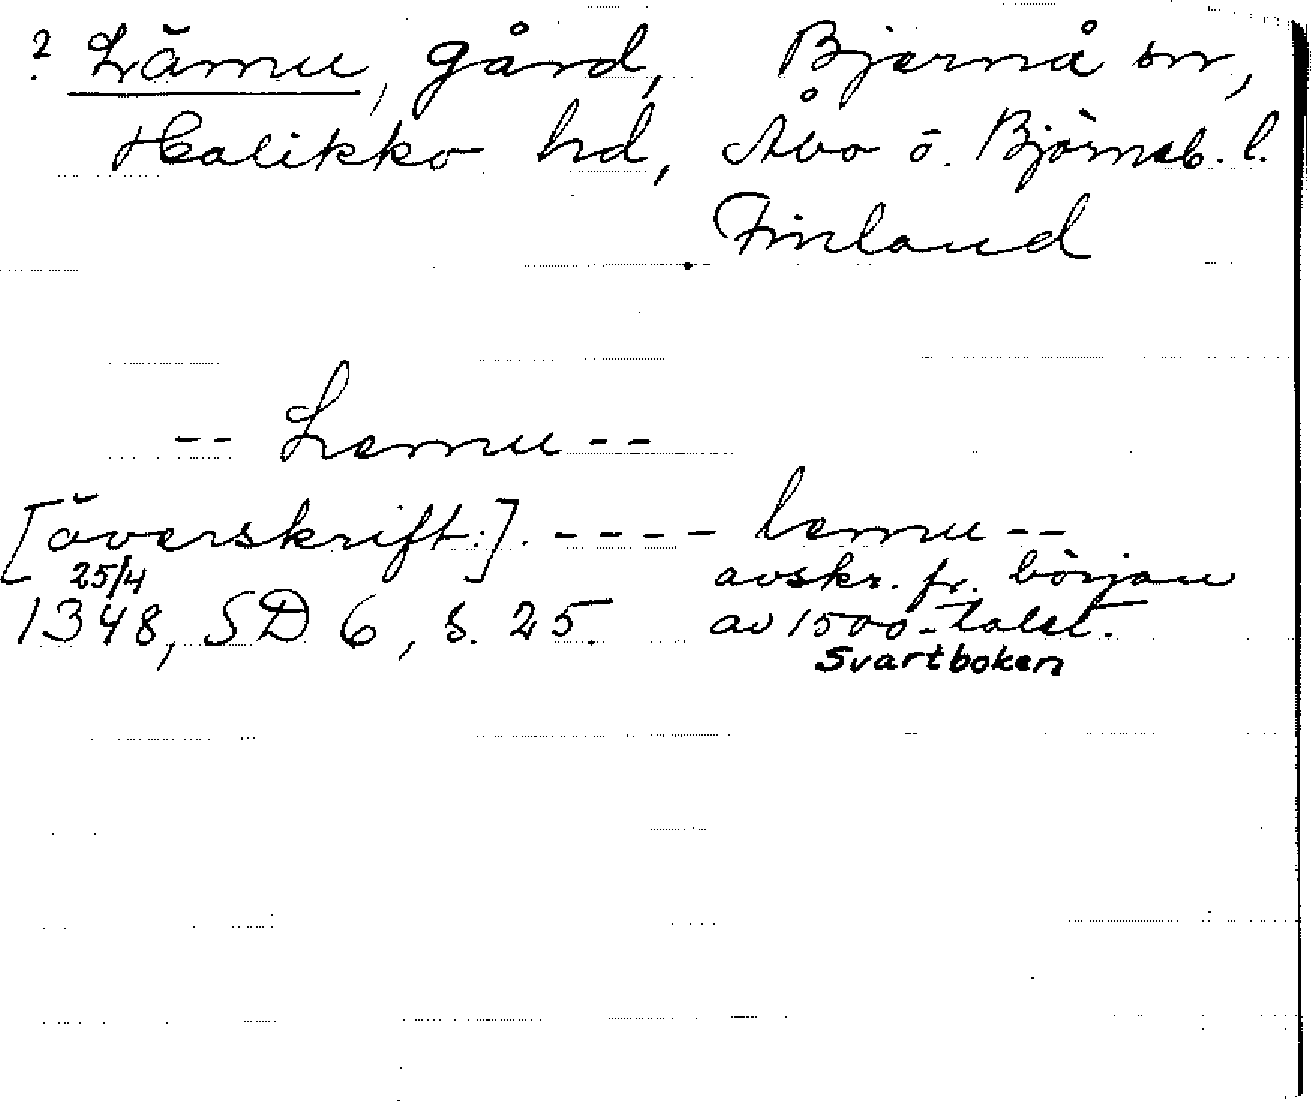 ? Lämu, gård, Bjärnå sn,
Halikko hd, Åbo o. Björneb. l.
Finland
-- Lemu --
[överskrift:]. ---- lemu --
25/4 avskr. fr. början
1348, SD 6, s. 25. av 1500-talet.
Svartboken